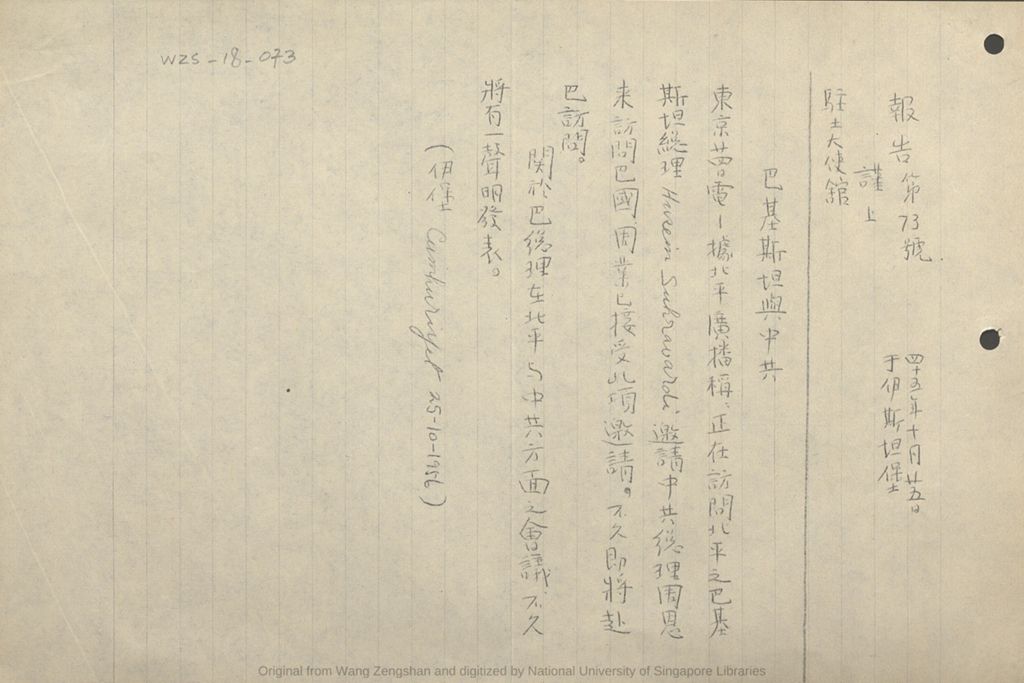 WZS-18-073
報告第73號.
四十五年十月廿五日
于伊斯坦堡
謹上
駐土大使館
巴基斯坦與中共
東京廿四日電—據北平廣播稱:正在訪問北平之巴基
斯坦總理 Husein Suhravardi, 邀請中共總理周恩
来訪問巴國,周業已接受此項邀請。不久即將赴
巴訪問。
関於巴總理在北平与中共方面之會議,不久
將有一聲明發表。
(伊堡 Cumhuriyet 25-10-1956)
Original from Wang Zengshan and digitized by National University of Singapore Libraries